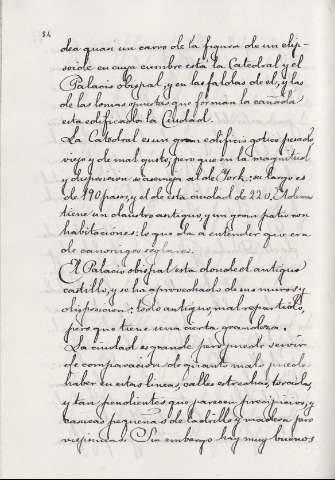 84
dea quasi un carro de la figura de un elip-
soide en cuya cumbre está la Catedral y el
Palacio obispal; y en las faldas de él, y las
de las lomas opuestas que forman la cañada
esta edificado la Ciudad.
La Catedral es un gran edificio gotico pesado,
viejo y de mal gusto, pero que en la magnitud
y disposicion se asemeja al de York: su largo es
de 190 pasos, y el de esta ciudad de 220.
tiene un claustro antiguo, y un gran patio con
habitaciones: lo que da a entender que era
de canonigos seglares.
El Palacio obispal esta donde el antiguo
castillo, y se ha aprovechado de sus muros y
disposicion; todo antiguo, mal repartido,
pero que tiene una cierta grandeza.
La ciudad es grande pero puede servir
de comparacion de quanto malo puede
haber en estas lineas, calles estrechas, torcidas,
y tan pendientes que parecen precipicios, y
casucas pequeñas de ladrillo y madera pero
viejisimas. Sin embargo hay muy buenos